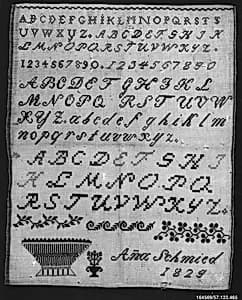 ABCDEFGHIKLMNOPQRSTS
UVWXYZ. ABCDEFGHIK
LMNOPQRSTUVWXYZ.
1234567890. 1234567890
ABCDEFGHIKL
MNOPQRSTUVW
XYZ. abcdefghiklm
nopqrstuvwxyz.
ABCDEFGHI
KLMNOPQ
RSTUVWXYZ.
Ana Schmied
1829
164509/57.122.465